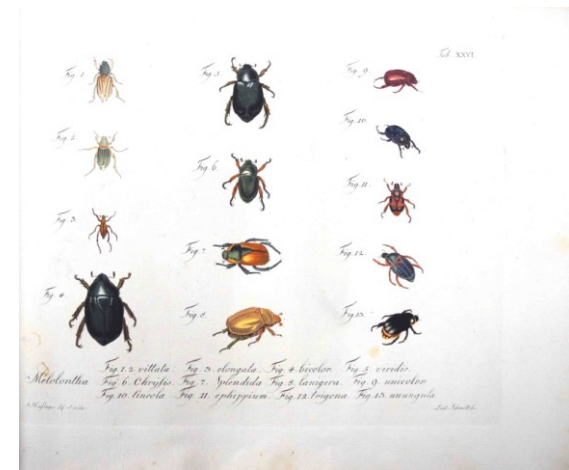 Tab. XXVI.
Fig. 1.
Fig. 2.
Fig. 3.
Fig. 4.
Fig. 5.
Fig. 6.
Fig. 7.
Fig. 8.
Fig. 9.
Fig. 10.
Fig. 11.
Fig. 12.
Fig. 13.
Fig. 1. 2. vittata. Fig. 3. elongata. Fig. 4. bicolor. Fig. 5. viridis.
Melolontha Fig. 6. Chrysis. Fig. 7. Splendida Fig. 8. lanigera. Fig. 9. unicolor
Fig. 10. lineola Fig. 11. ephippium. Fig. 12. trigona Fig. 13.